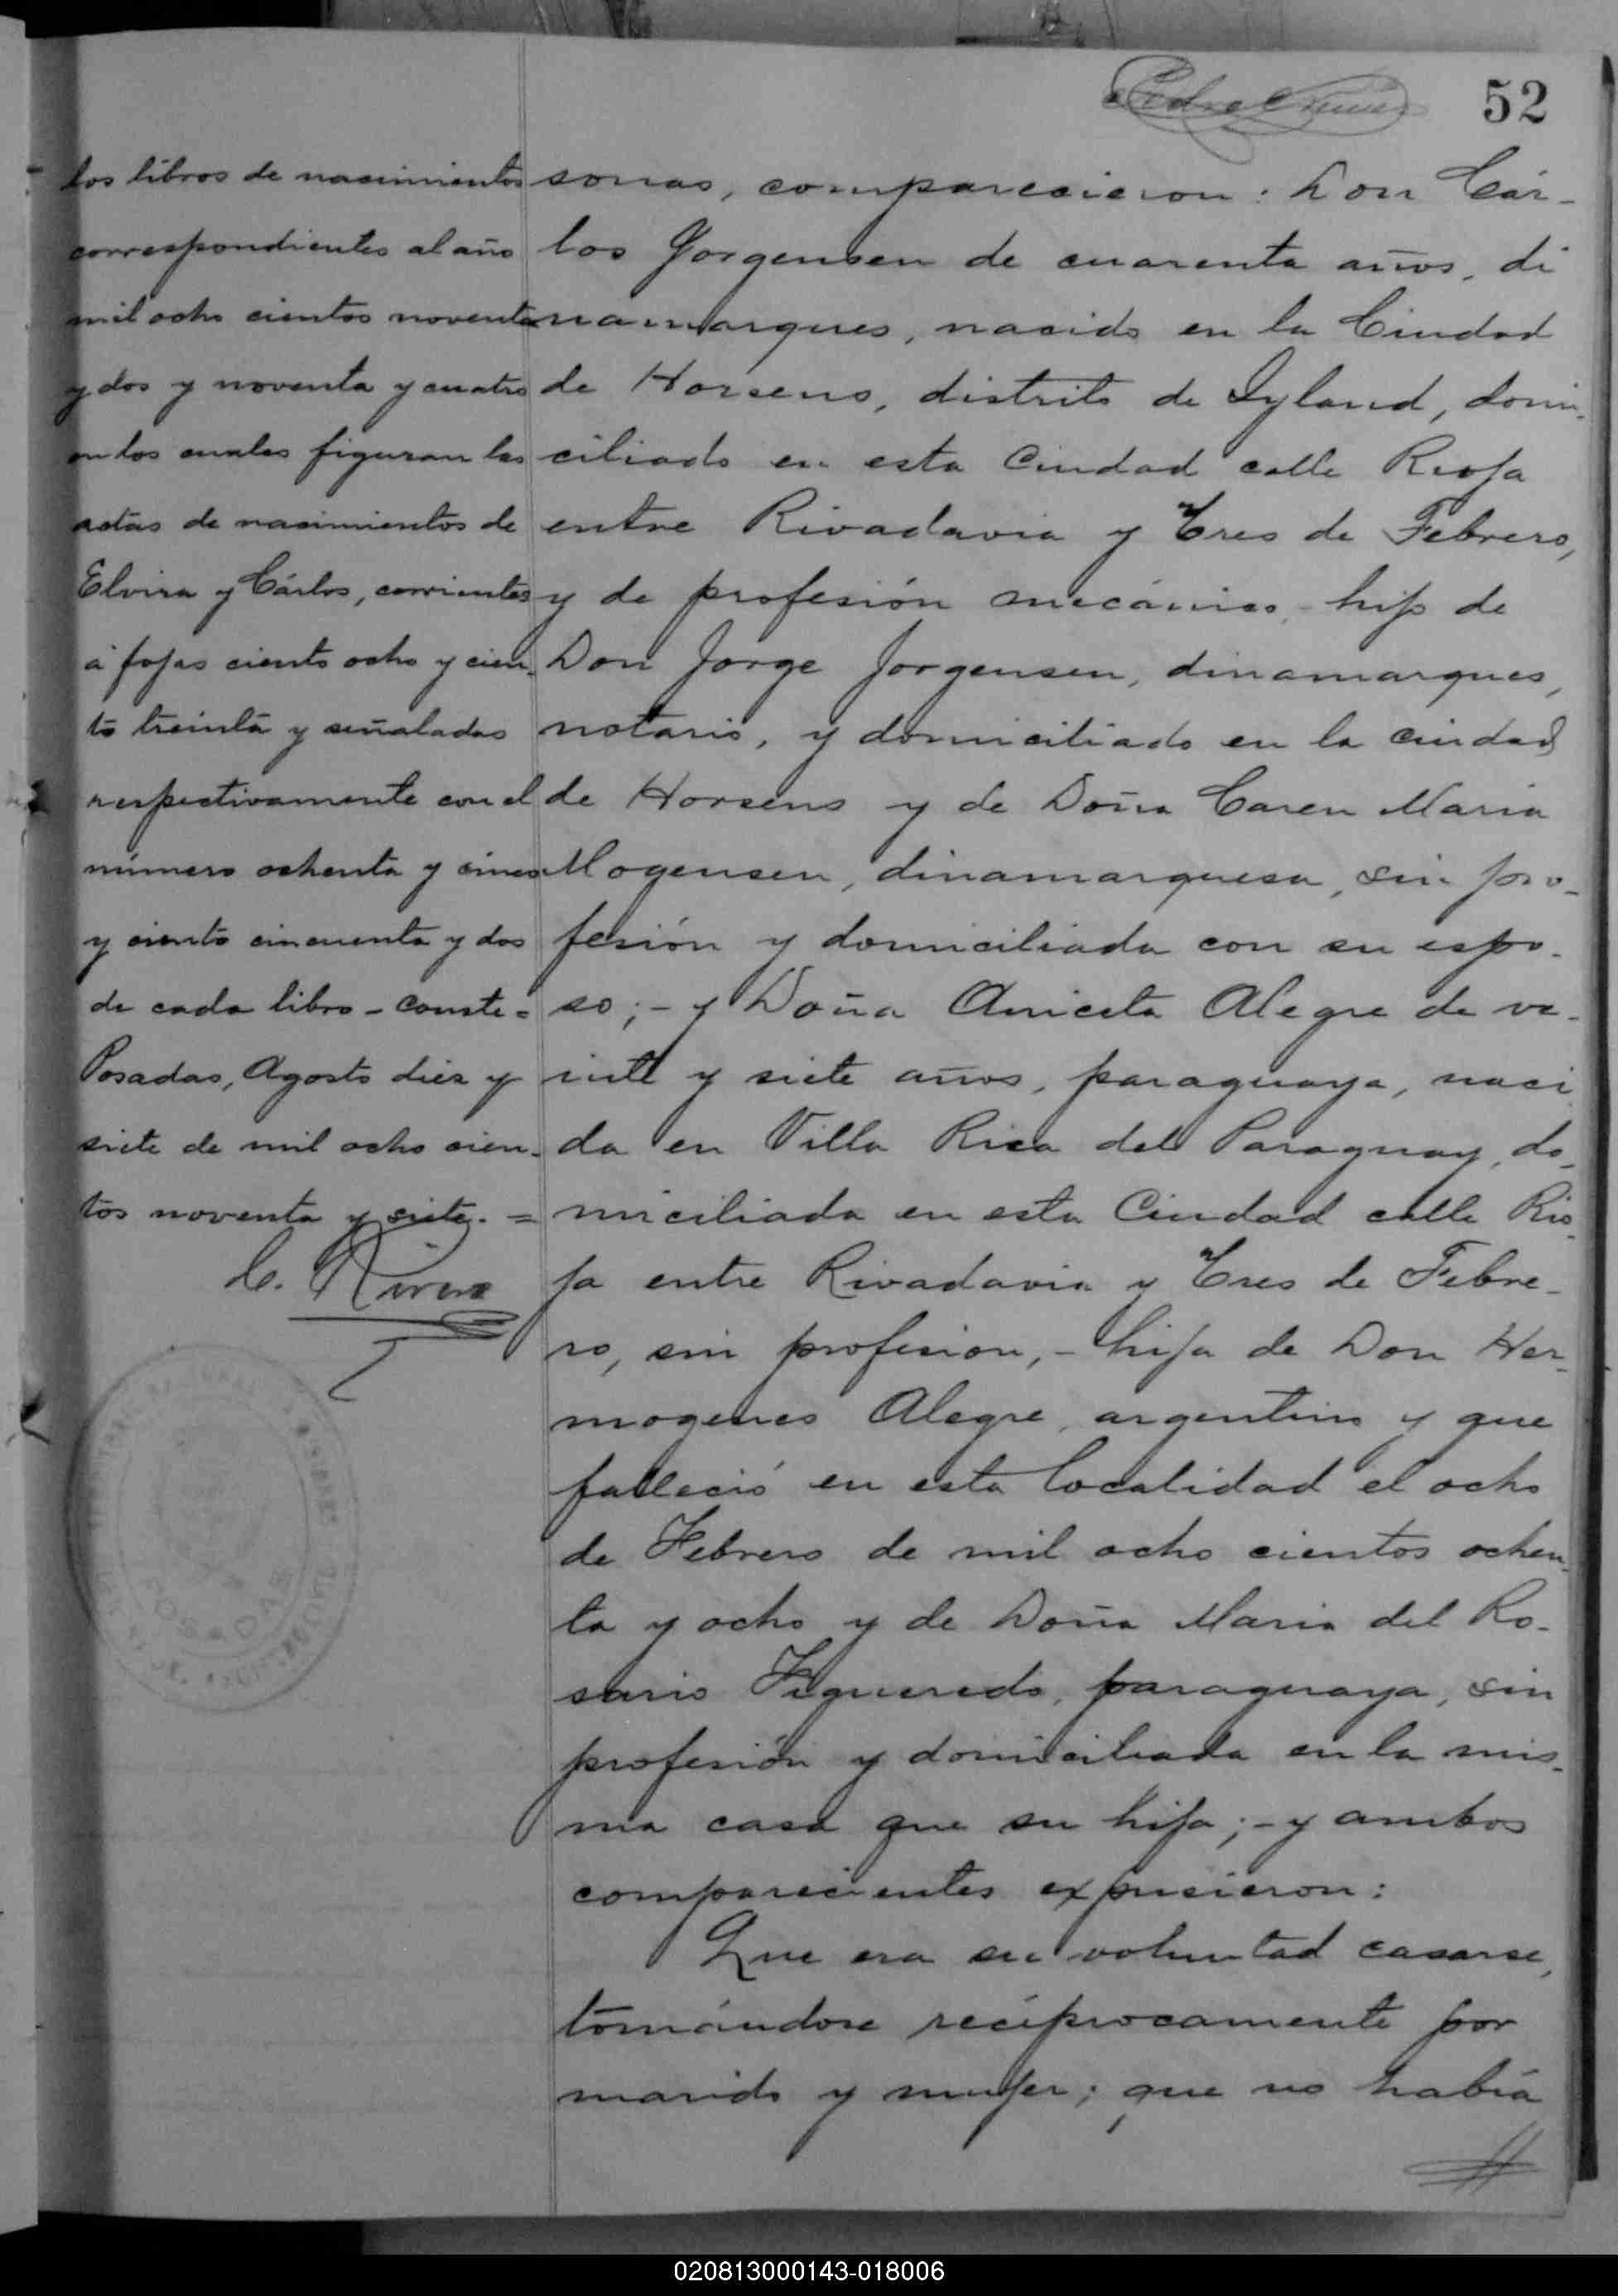 52
los libros de nacimientos
correspondientes al año
mil ocho cientos noventa
y dos y noventa y cuatro
en los cuales figuran las
actas de nacimientos de
Elvira y Cárlos, corrientes
á fojas ciento ocho y cien-
to treinta y señaladas
respectivamente con el
número ochenta y cinco
y ciento cincuenta y dos
de cada libro - Conste =
Posadas, Agosto diez y
siete de mil ocho cien-
tos noventa y siete. =
C. Rivero
POSADAS
sonas, comparecieron: Don Cár-
los Jorgensen de cuarenta años, di
namarques, nacido en la Ciudad
de Horsens, distrito de Jyland, domi-
ciliado en esta Ciudad calle Rioja
entre Rivadavia y Tres de Febrero,
y de profesión mecánico - hijo de
Don Jorge Jorgensen, dinamarques,
notario, y domiciliado en la ciudad
de Horsens y de Doña Caren Maria
Mogensen, dinamarquesa, sin pro-
fesión y domiciliada con su espo-
so; - y Doña Aniceta Alegre de ve-
inte y siete años, paraguaya, naci
da en Villa Rica del Paraguay, do-
miciliada en esta Ciudad calle Rio-
ja entre Rivadavia y Tres de Febre-
ro, sin profesion, - hija de Don Her-
mogenes Alegre, argentino y que
falleció en esta localidad el ocho
de Febrero de mil ocho cientos ochen-
ta y ocho y de Doña Maria del Ro-
sario Figueredo, paraguaya, sin
profesión y domiciliada en la mis-
ma casa que su hija; - y ambos
comparecientes expusieron:
Que era su voluntad casarse,
tomándose recíprocamente por
marido y mujer; que no había
020813000143-018006